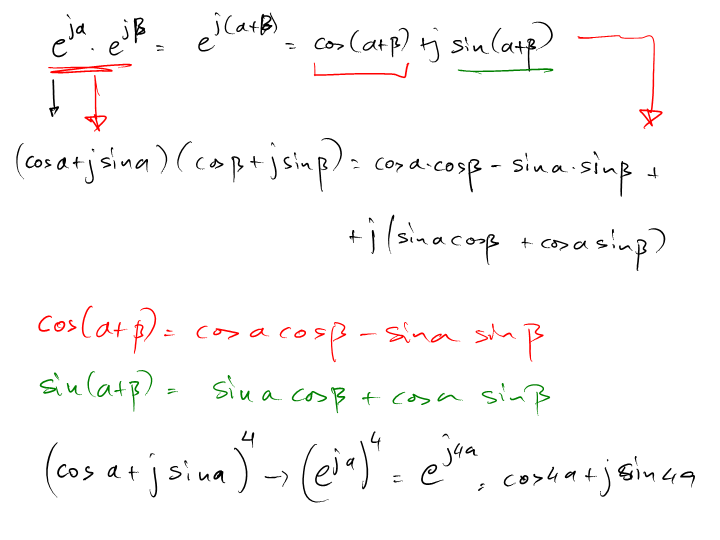 e^{ja} · e^{jβ} = e^{j(a+β)} = cos(a+β) + j sin(a+β)
(cosa+jsina)(cosβ+jsinβ) = cosa·cosβ - sina·sinβ +
+ j(sinacosβ + cosasinβ)
cos(a+β) = cosacosβ - sina sinβ
sin(a+β) = sina cosβ + cosa sinβ
(cosa+jsina)^4 → (e^{ja})^4 = e^{j4a} = cos4a+jsin4a